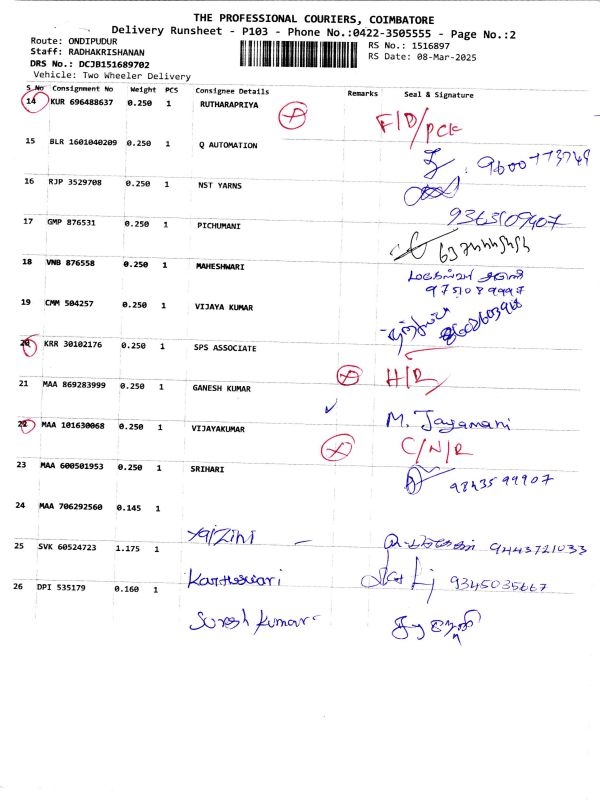 THE PROFESSIONAL COURIERS, COIMBATORE
Delivery Runsheet - P103 - Phone No.:0422-3505555 - Page No.:2
Route: ONDIPUDUR RS No.: 1516897
Staff: RADHAKRISHANAN RS Date: 08-Mar-2025
DRS No.: DCJB151689702
Vehicle: Two Wheeler Delivery
S No Consignment No Weight PCS Consignee Details Remarks Seal & Signature
14 KUR 696488637 0.250 1 RUTHARAPRIYA
F/D/PCK
15 BLR 1601040209 0.250 1 Q AUTOMATION
9600773749
16 RJP 3529708 0.250 1 NST YARNS
9363109407
17 GMP 876531 0.250 1 PICHUMANI
18 VNB 876558 0.250 1 MAHESHWARI
9751089997
19 CMM 504257 0.250 1 VIJAYA KUMAR
20 KRR 30102176 0.250 1 SPS ASSOCIATE
H/R
21 MAA 869283999 0.250 1 GANESH KUMAR
M. Jayamani
22 MAA 101630068 0.250 1 VIJAYAKUMAR
C/N/R
23 MAA 600501953 0.250 1 SRIHARI
9843599907
24 MAA 706292560 0.145 1
Yazini – 9443721033
25 SVK 60524723 1.175 1
9345035667
26 DPI 535179 0.160 1
Suresh Kumar